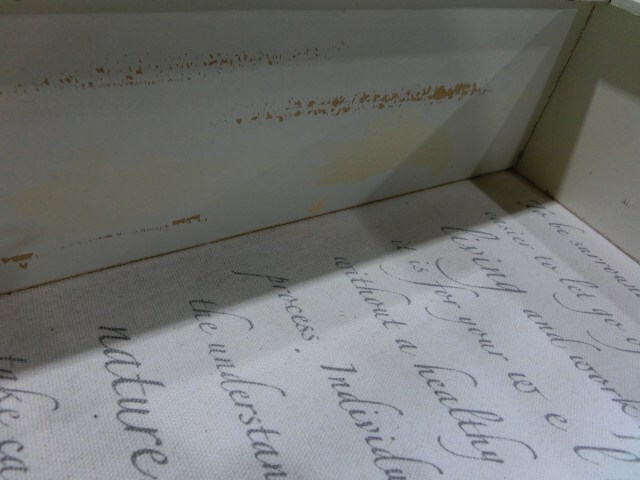 to be surrou
easier to let go o
living and work
it is for your w e l
without a healthy
process. Individu
the understan
nature
take ca